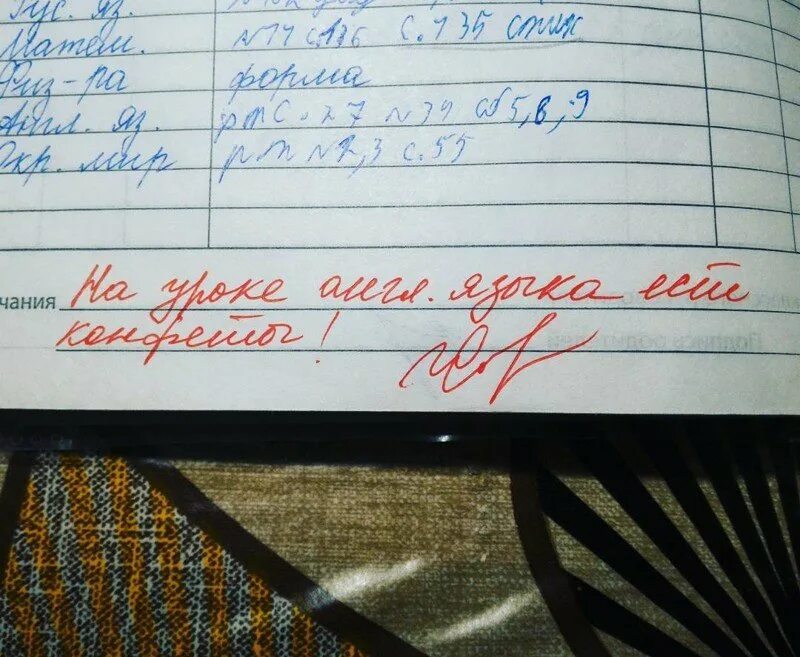 Рус. яз.
Матем. №14 с.136 с.135 стих
Физ-ра форма
Англ. яз. рт с.27 №34 5,6,9
Окр. мир рт №2,3 с.55
чания На уроке англ. языка ест
конфеты!